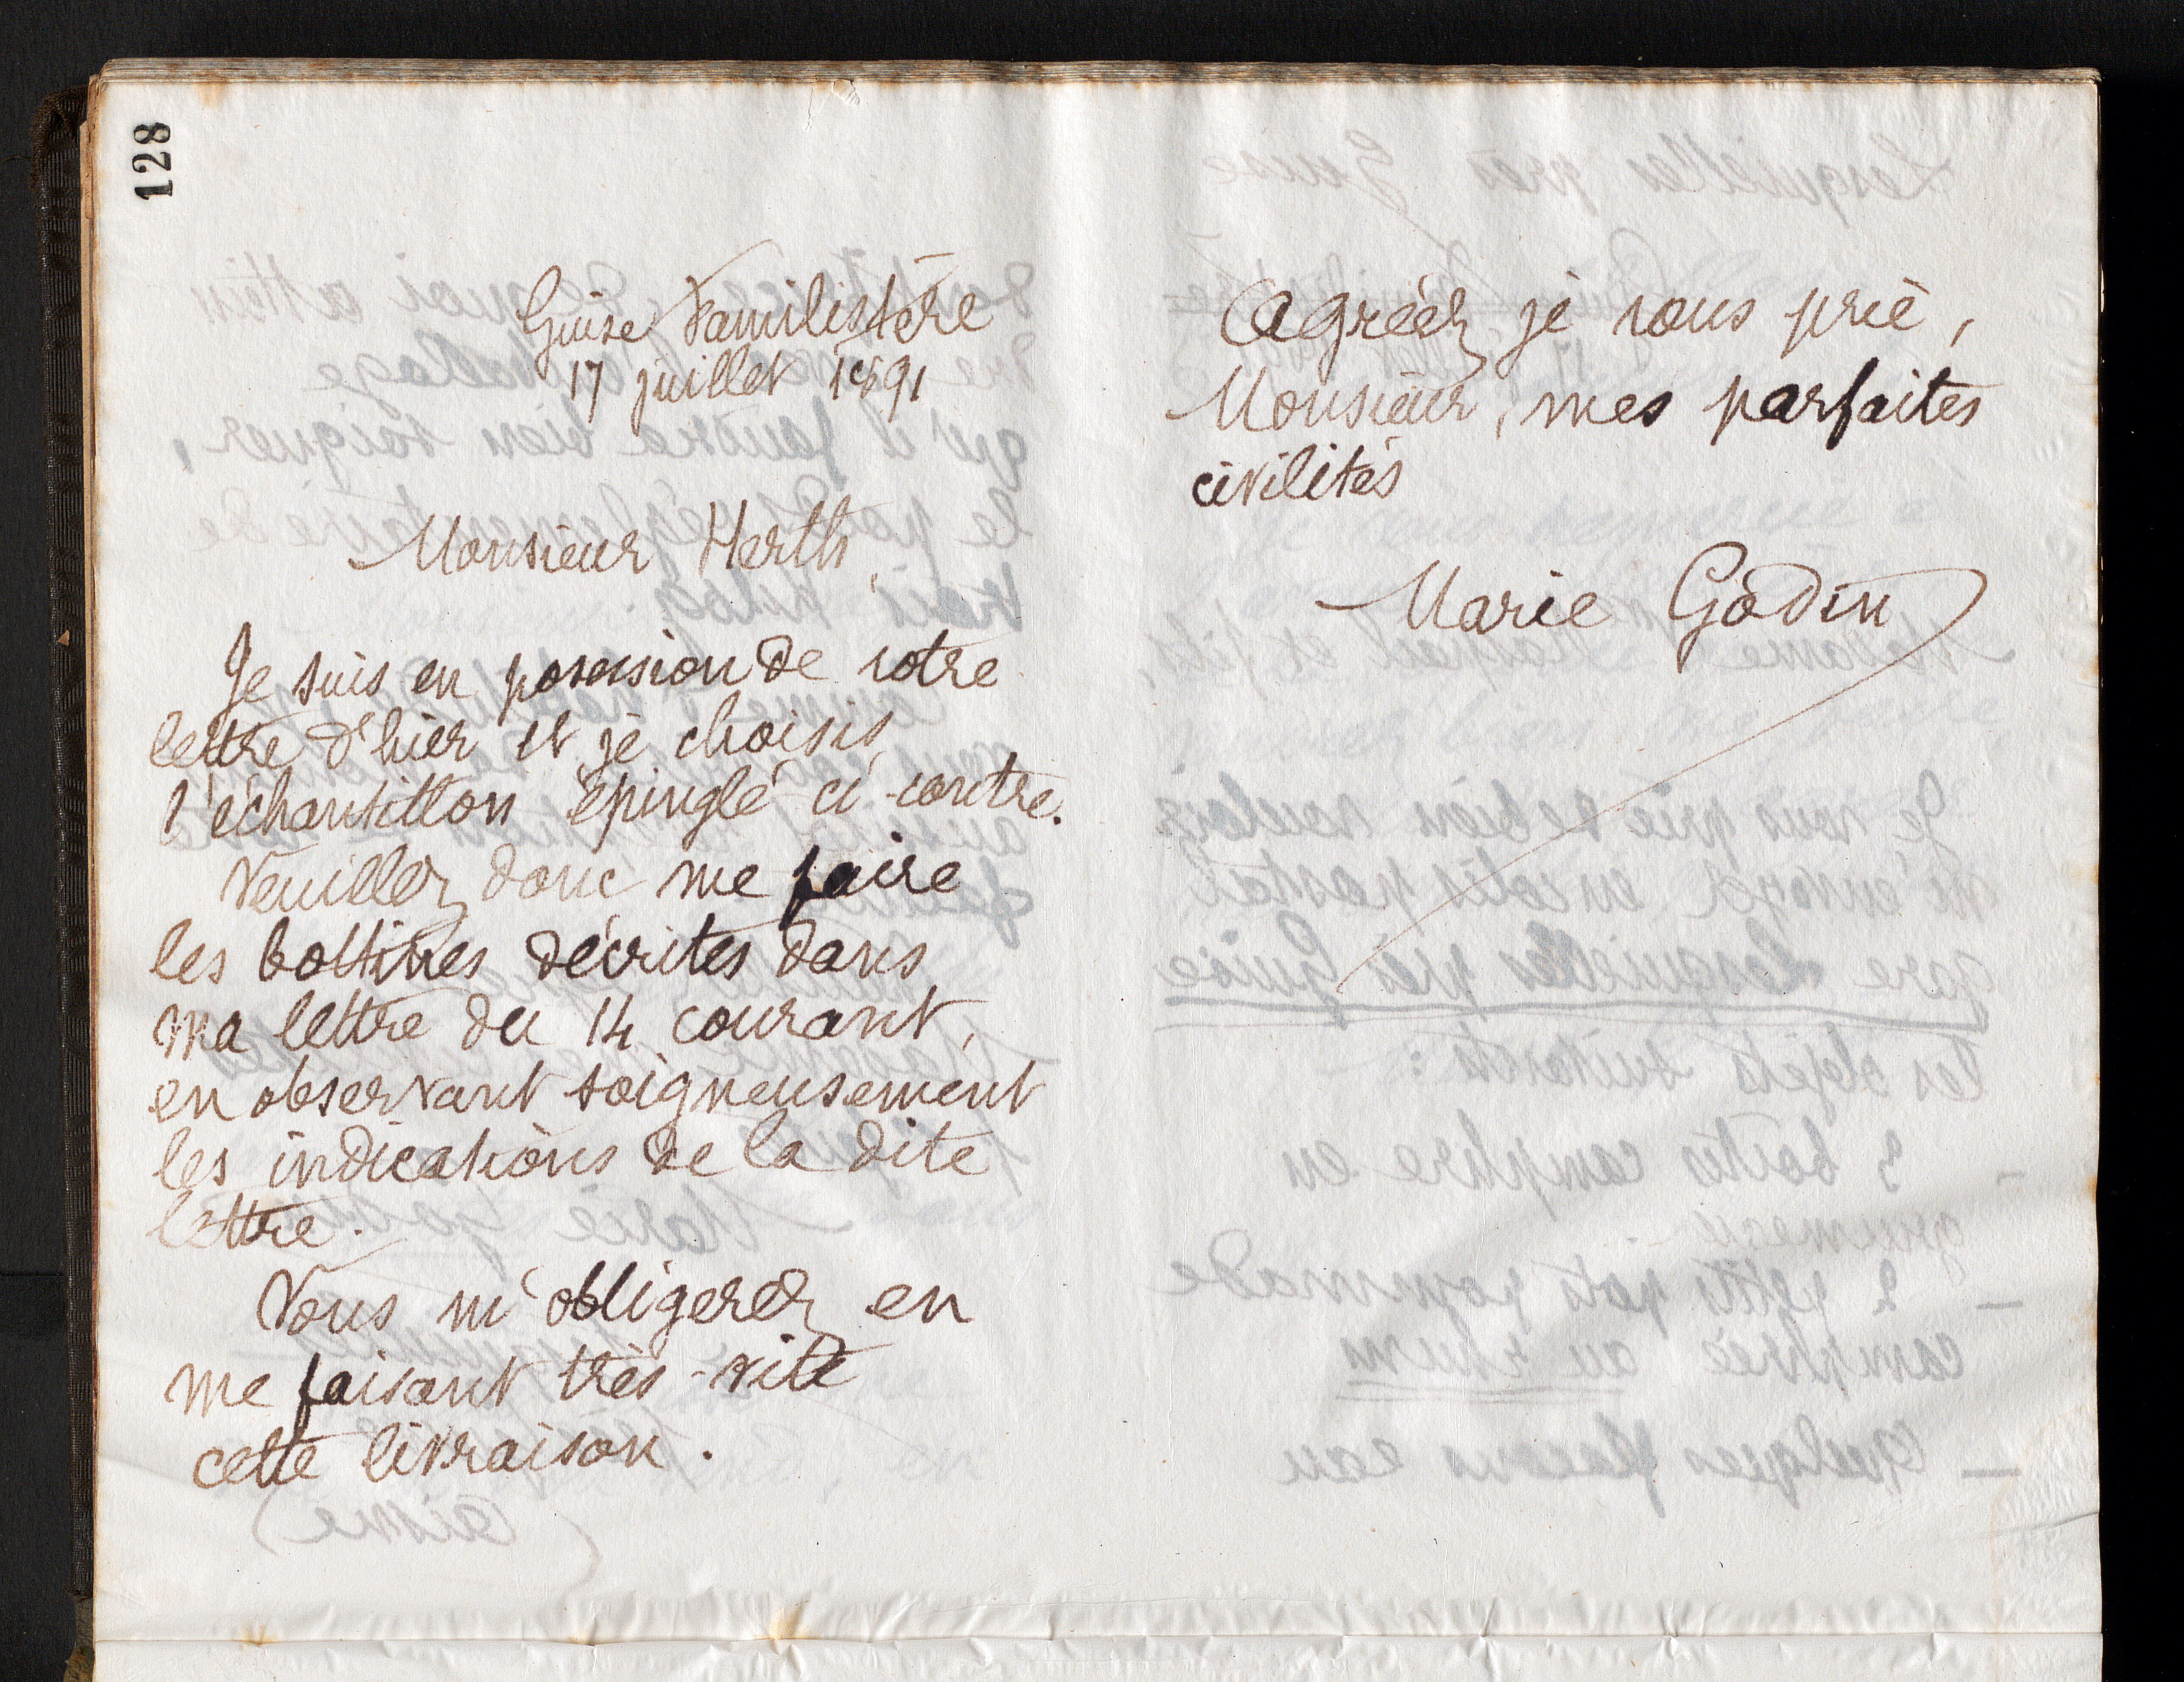 128
Guise Familistère
17 juillet 1891
Monsieur Herth,
Je suis en possession de votre
lettre d'hier et je choisis
l'échantillon épinglé ci-contre.
Veuillez donc me faire
les bottines décrites dans
ma lettre du 14 courant,
en observant soigneusement
les indications de la dite
lettre.
Vous m'obligerez en
me faisant très-vite
cette livraison.
Agréez je vous prie,
Monsieur, mes parfaites
civilités
Marie Godin